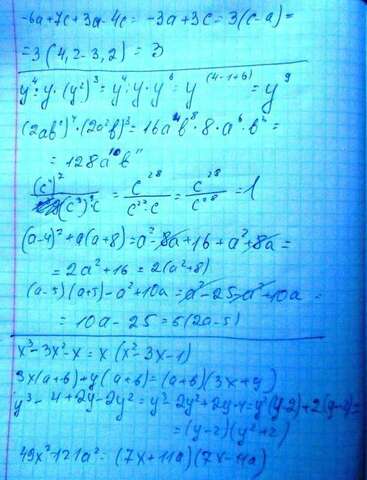 -6a+7c+3a-4c = -3a+3c=3(c-a)=
=3(4,2-3,2)=3
y⁴:y·(y²)³=y⁴:y·y⁶=y⁽⁴⁻¹⁺⁶⁾=y⁹
(2ab²)⁴·(2a²b)³=16a⁴b⁸·8·a⁶·b³=
=128a¹⁰b¹¹
= c²⁸/c²⁷·c = c²⁸/c²⁸ =1
(a-4)²+a(a+8)=a²-8a+16+a²+8a=
=2a²+16=2(a²+8)
(a-5)(a+5)-a²+10a=a²-25-a²+10a=
=10a-25=5(2a-5)
x³-3x²-x=x(x²-3x-1)
3x(a+b)+y(a+b)=(a+b)(3x+y)
y³-4+2y-2y²=y³-2y²+2y-4=y²(y-2)+2(y-2)=
=(y-2)(y²+2)
49x²-121a²=(7x+11a)(7x-11a)